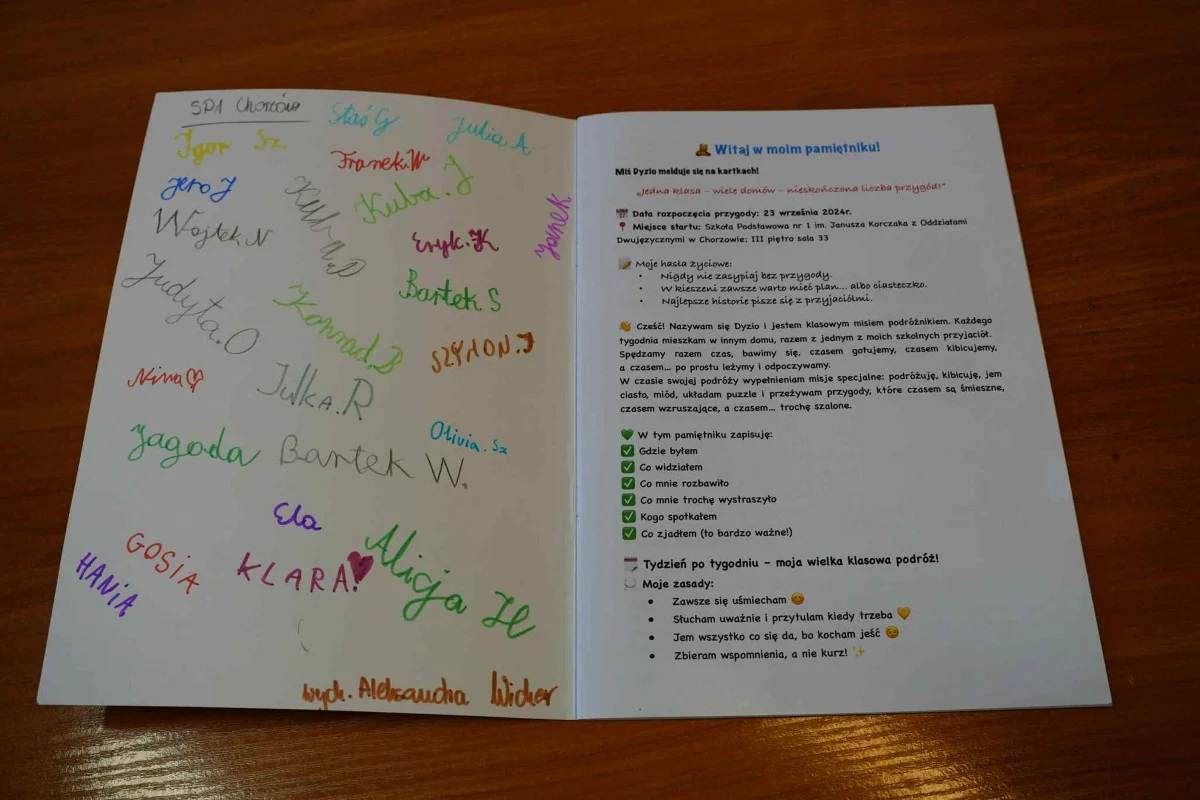 SP1 Chorzów
Staś G
Julia A
Igor Sz
Franek.W
Jero J
Kuba.J
Kuba.D
Janek
Wojtek N
Eryk.K
Bartek S
Judyta.O
Konrad.B
SZYMON.J
Nina
Julka.R
Jagoda
Bartek W.
Olivia.Sz
Ela
GOSIA
HANIA
KLARA!
Alicja H
wych. Aleksandra Wicher
Witaj w moim pamiętniku!
Miś Dyzio melduje się na kartkach!
„Jedna klasa – wiele domów – nieskończona liczba przygód!"
Data rozpoczęcia przygody: 23 września 2024r.
Miejsce startu: Szkoła Podstawowa nr 1 im. Janusza Korczaka z Oddziałami
Dwujęzycznymi w Chorzowie; III piętro sala 33
Moje hasła życiowe:
• Nigdy nie zasypiaj bez przygody.
• W kieszeni zawsze warto mieć plan... albo ciasteczko.
• Najlepsze historie pisze się z przyjaciółmi.
👋 Cześć! Nazywam się Dyzio i jestem klasowym misiem podróżnikiem. Każdego
tygodnia mieszkam w innym domu, razem z jednym z moich szkolnych przyjaciół.
Spędzamy razem czas, bawimy się, czasem gotujemy, czasem kibicujemy,
a czasem... po prostu leżymy i odpoczywamy.
W czasie swojej podróży wypełnieniam misje specjalne: podróżuję, kibicuję, jem
ciasto, miód, układam puzzle i przeżywam przygody, które czasem są śmieszne,
czasem wzruszające, a czasem... trochę szalone.
💚 W tym pamiętniku zapisuję:
✅ Gdzie byłem
✅ Co widziałem
✅ Co mnie rozbawiło
✅ Co mnie trochę wystraszyło
✅ Kogo spotkałem
✅ Co zjadłem (to bardzo ważne!)
Tydzień po tygodniu – moja wielka klasowa podróż!
Moje zasady:
• Zawsze się uśmiecham 😊
• Słucham uważnie i przytulam kiedy trzeba 💛
• Jem wszystko co się da, bo kocham jeść 😄
• Zbieram wspomnienia, a nie kurz! ✨